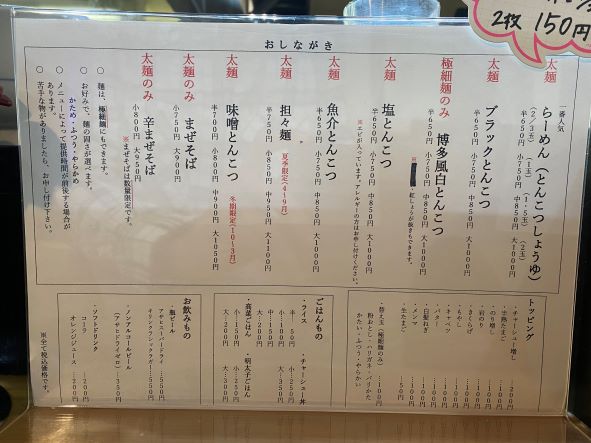 2枚 150円
おしながき
一番人気
太麺
らーめん（とんこつしょうゆ）
（2/3玉）（1玉）（1・5玉）（2玉）
半650円 小750円 中850円 大1000円
太麺
ブラックとんこつ
半650円 小750円 中850円 大1000円
極細麺のみ
博多風白とんこつ
半650円 小750円 中850円 大1000円
太麺
塩とんこつ
半650円 小750円 中850円 大1000円
※エビが入っています。アレルギーの方はお申し付けください。
太麺
魚介とんこつ
半650円 小750円 中850円 大1000円
太麺
担々麺
夏季限定（4～9月）
半750円 小850円 中950円 大1100円
太麺
味噌とんこつ
冬期限定（10～3月）
半700円 小800円 中900円 大1050円
太麺のみ
まぜそば
小750円 大900円
太麺のみ
辛まぜそば
小800円 大950円
※まぜそばは数量限定です。
○ 麺は、極細麺にもできます。
○ お好みで、麺の固さが選べます。
かため・ふつう・やらかめ
○ メニューによって提供時間が前後する場合があります。
○ 苦手な物がありましたら、お申し付け下さい。
トッピング
・チャーシュー増し
・半熟たまご
・のり増し
・岩のり
・きくらげ
・もやし
・キャベツ
・バター
・白髪ねぎ
・メンマ
・生たまご
・替え玉（極細麺のみ）
粉おとし・ハリガネ・バリかた
かたい・ふつう・やらかい
ごはんもの
・ライス
半：50円
小：100円
中：150円
大：200円
・高菜ごはん
小：150円
大：250円
・チャーシュー丼
小：250円
大：350円
・明太子ごはん
お飲みもの
・瓶ビール
アサヒスーパードライ…550円
キリンクラシックラガー…550円
・ノンアルコールビール
（アサヒドライゼロ）…350円
・ソフトドリンク
コーラ …200円
オレンジジュース …200円
※全て税込価格です。